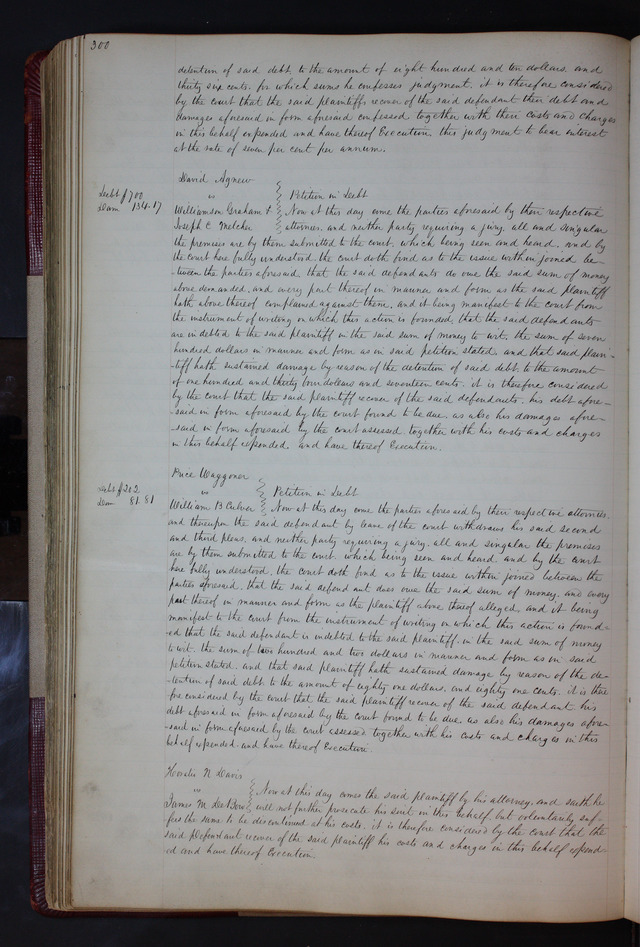 300
detention of said debt, to the amount of eight hundred and ten dollars. and
thirty six cents. for which sums he confesses judgment. it is therefore considered
by the court that the said plaintiffs recover of the said defendant their debt and
damages aforesaid in form aforesaid confessed together with their costs and charges
in this behalf expended and have thereof Execution this judgment to bear interest
at the rate of seven per cent per annum.
David Agnew
Debt $700 vs Petition in Debt
Dam 134.17 Williamson Graham & Now at this day come the parties aforesaid by their respective
Joseph C attornies. and neither party requiring a jury. all and singular
the premises are by them submitted to the court. which being seen and heard. and by
the court here fully understood. the court doth find as to the issue within joined be-
-tween the parties aforesaid. that the said defendants do owe the said sum of money
above demanded. and every part thereof in manner and form as the said plaintiff
hath above thereof complained against them. and it being manifest to the court from
the instrument of writing on which this action is founded, that the said defendants
are indebted to the said plaintiff in the said sum of money to wit. the sum of seven
hundred dollars in manner and form as in said petition stated. and that said plain-
-tiff hath sustained damage by reason of the detention of said debt. to the amount
of one hundred and thirty four dollars and seventeen cents. it is therefore considered
by the court that the said plaintiff recover of the said defendants. his debt afore-
-said in form aforesaid by the court found to be due. as also his damages afore-
-said in form aforesaid by the court assessed together with his costs and charges
in this behalf expended. and have thereof Execution.
Price Waggoner
Debt $202 vs Petition in Debt
Dam 81.81 William B Culver Now at this day come the parties aforesaid by their respective attornies.
and thereupon the said defendant by leave of the court withdraws his said second
and third pleas. and neither party requiring a jury. all and singular the premises
are by them submitted to the court. which being seen and heard. and by the court
here fully understood. the court doth find as to the issue within joined between the
parties aforesaid. that the said defendant does owe the said sum of money. and every
part thereof in manner and form as the plaintiff above thereof alleged. and it being
manifest to the court from the instrument of writing on which this action is found-
-ed that the said defendant is indebted to the said plaintiff. in the said sum of money
to wit. the sum of two hundred and two dollars in manner and form as in said
petition stated. and that said plaintiff hath sustained damage by reason of the de-
-tention of said debt. to the amount of eighty one dollars. and eighty one cents. it is there
fore considered by the court that the said plaintiff recover of the said defendant his
debt aforesaid in form aforesaid by the court found to be due. as also his damages afore-
-said in form aforesaid by the court assessed together with his costs and charges in this
behalf expended. and have thereof Execution.
Horatio N Davis
vs Now at this day comes the said plaintiff by his attorney. and saith he
James M DeBow will not further prosecute his suit in this behalf. but voluntarily suf-
fers the same to be discontinued at his costs. it is therefore considered by the court that the
said defendant recover of the said plaintiff his costs and charges in this behalf expend-
ed and have thereof Execution.